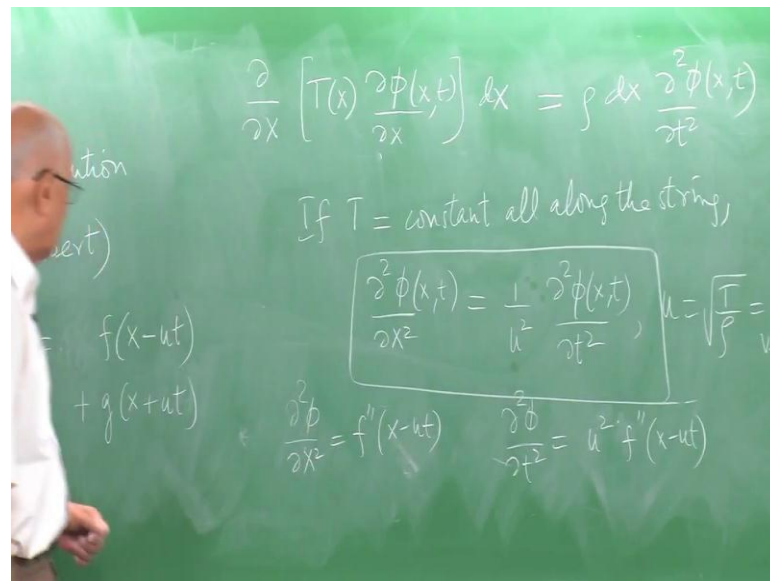 ∂/∂x [T(x) ∂φ(x,t)/∂x] dx = ρ dx ∂²φ(x,t)/∂t²
If T = constant all along the string,
∂²φ(x,t)/∂x² = 1/u² ∂²φ(x,t)/∂t², u = √(T/ρ) =
= f(x-ut)
+ g(x+ut)
∂²φ/∂x² = f''(x-ut) ∂²φ/∂t² = u² f''(x-ut)